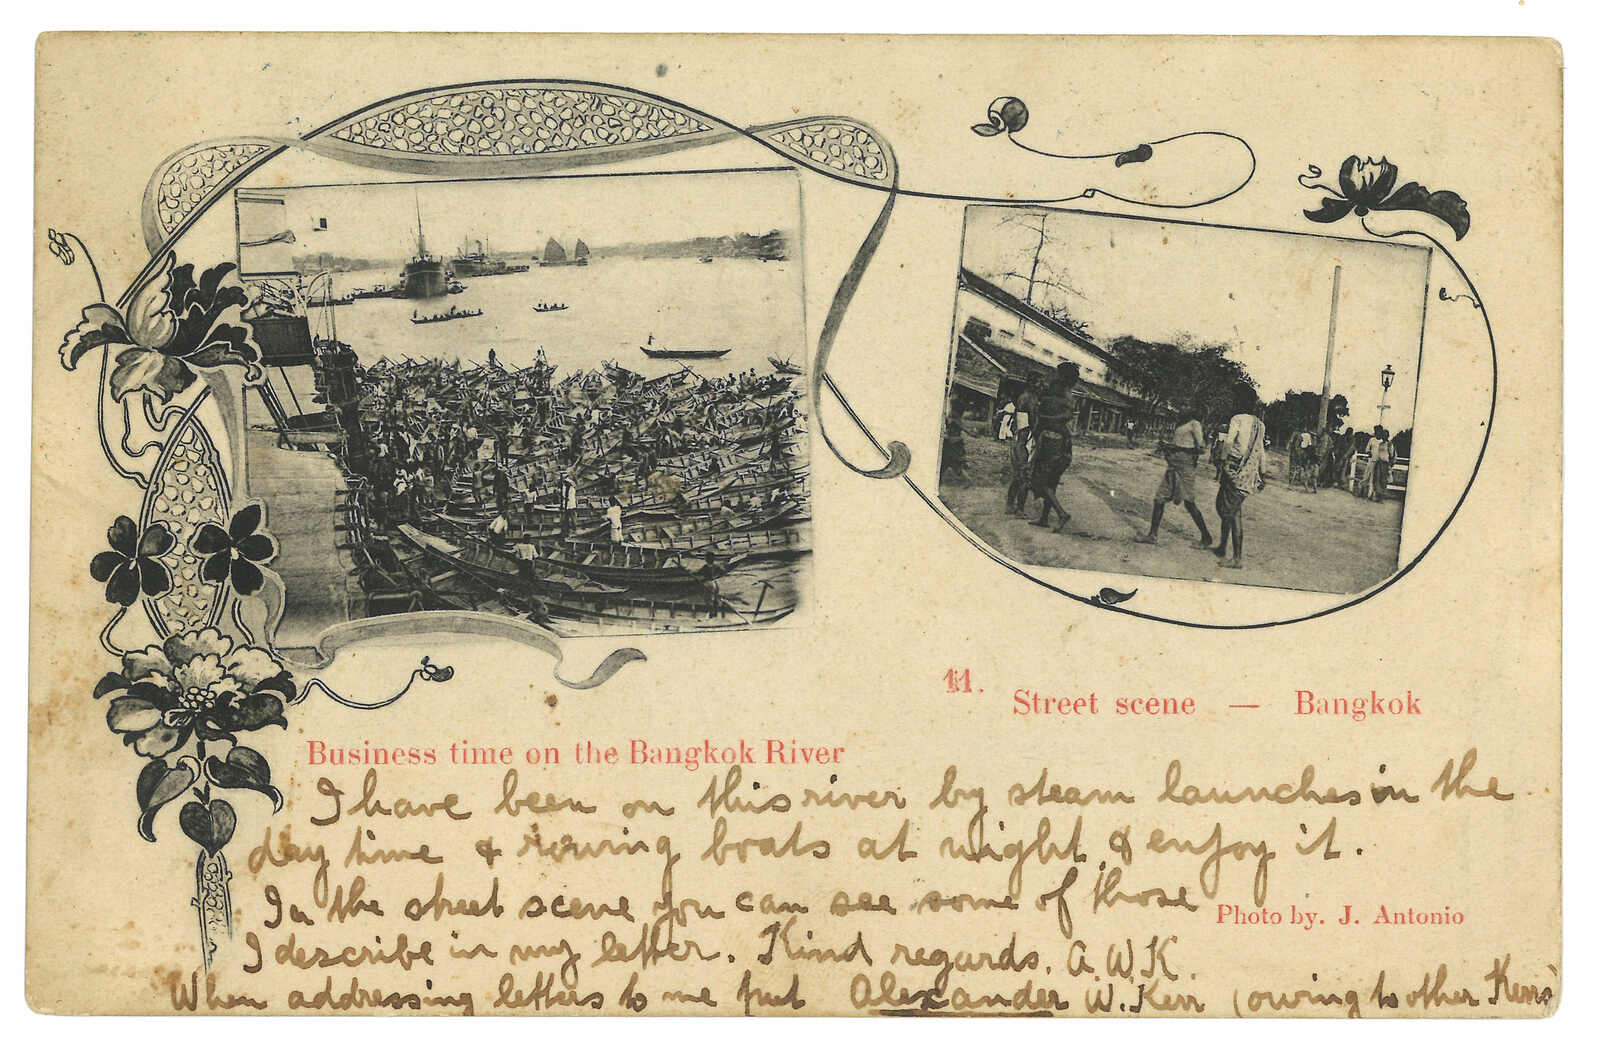 11.
Street scene — Bangkok
Business time on the Bangkok River
I have been on this river by steam launches in the
day time & rowing boats at night & enjoy it.
In the street scene you can see some of those
Photo by. J. Antonio
I describe in my letter. Kind regards. A.W.K.
When addressing letters to me put Alexander W. Kerr (owing to other Kerrs)